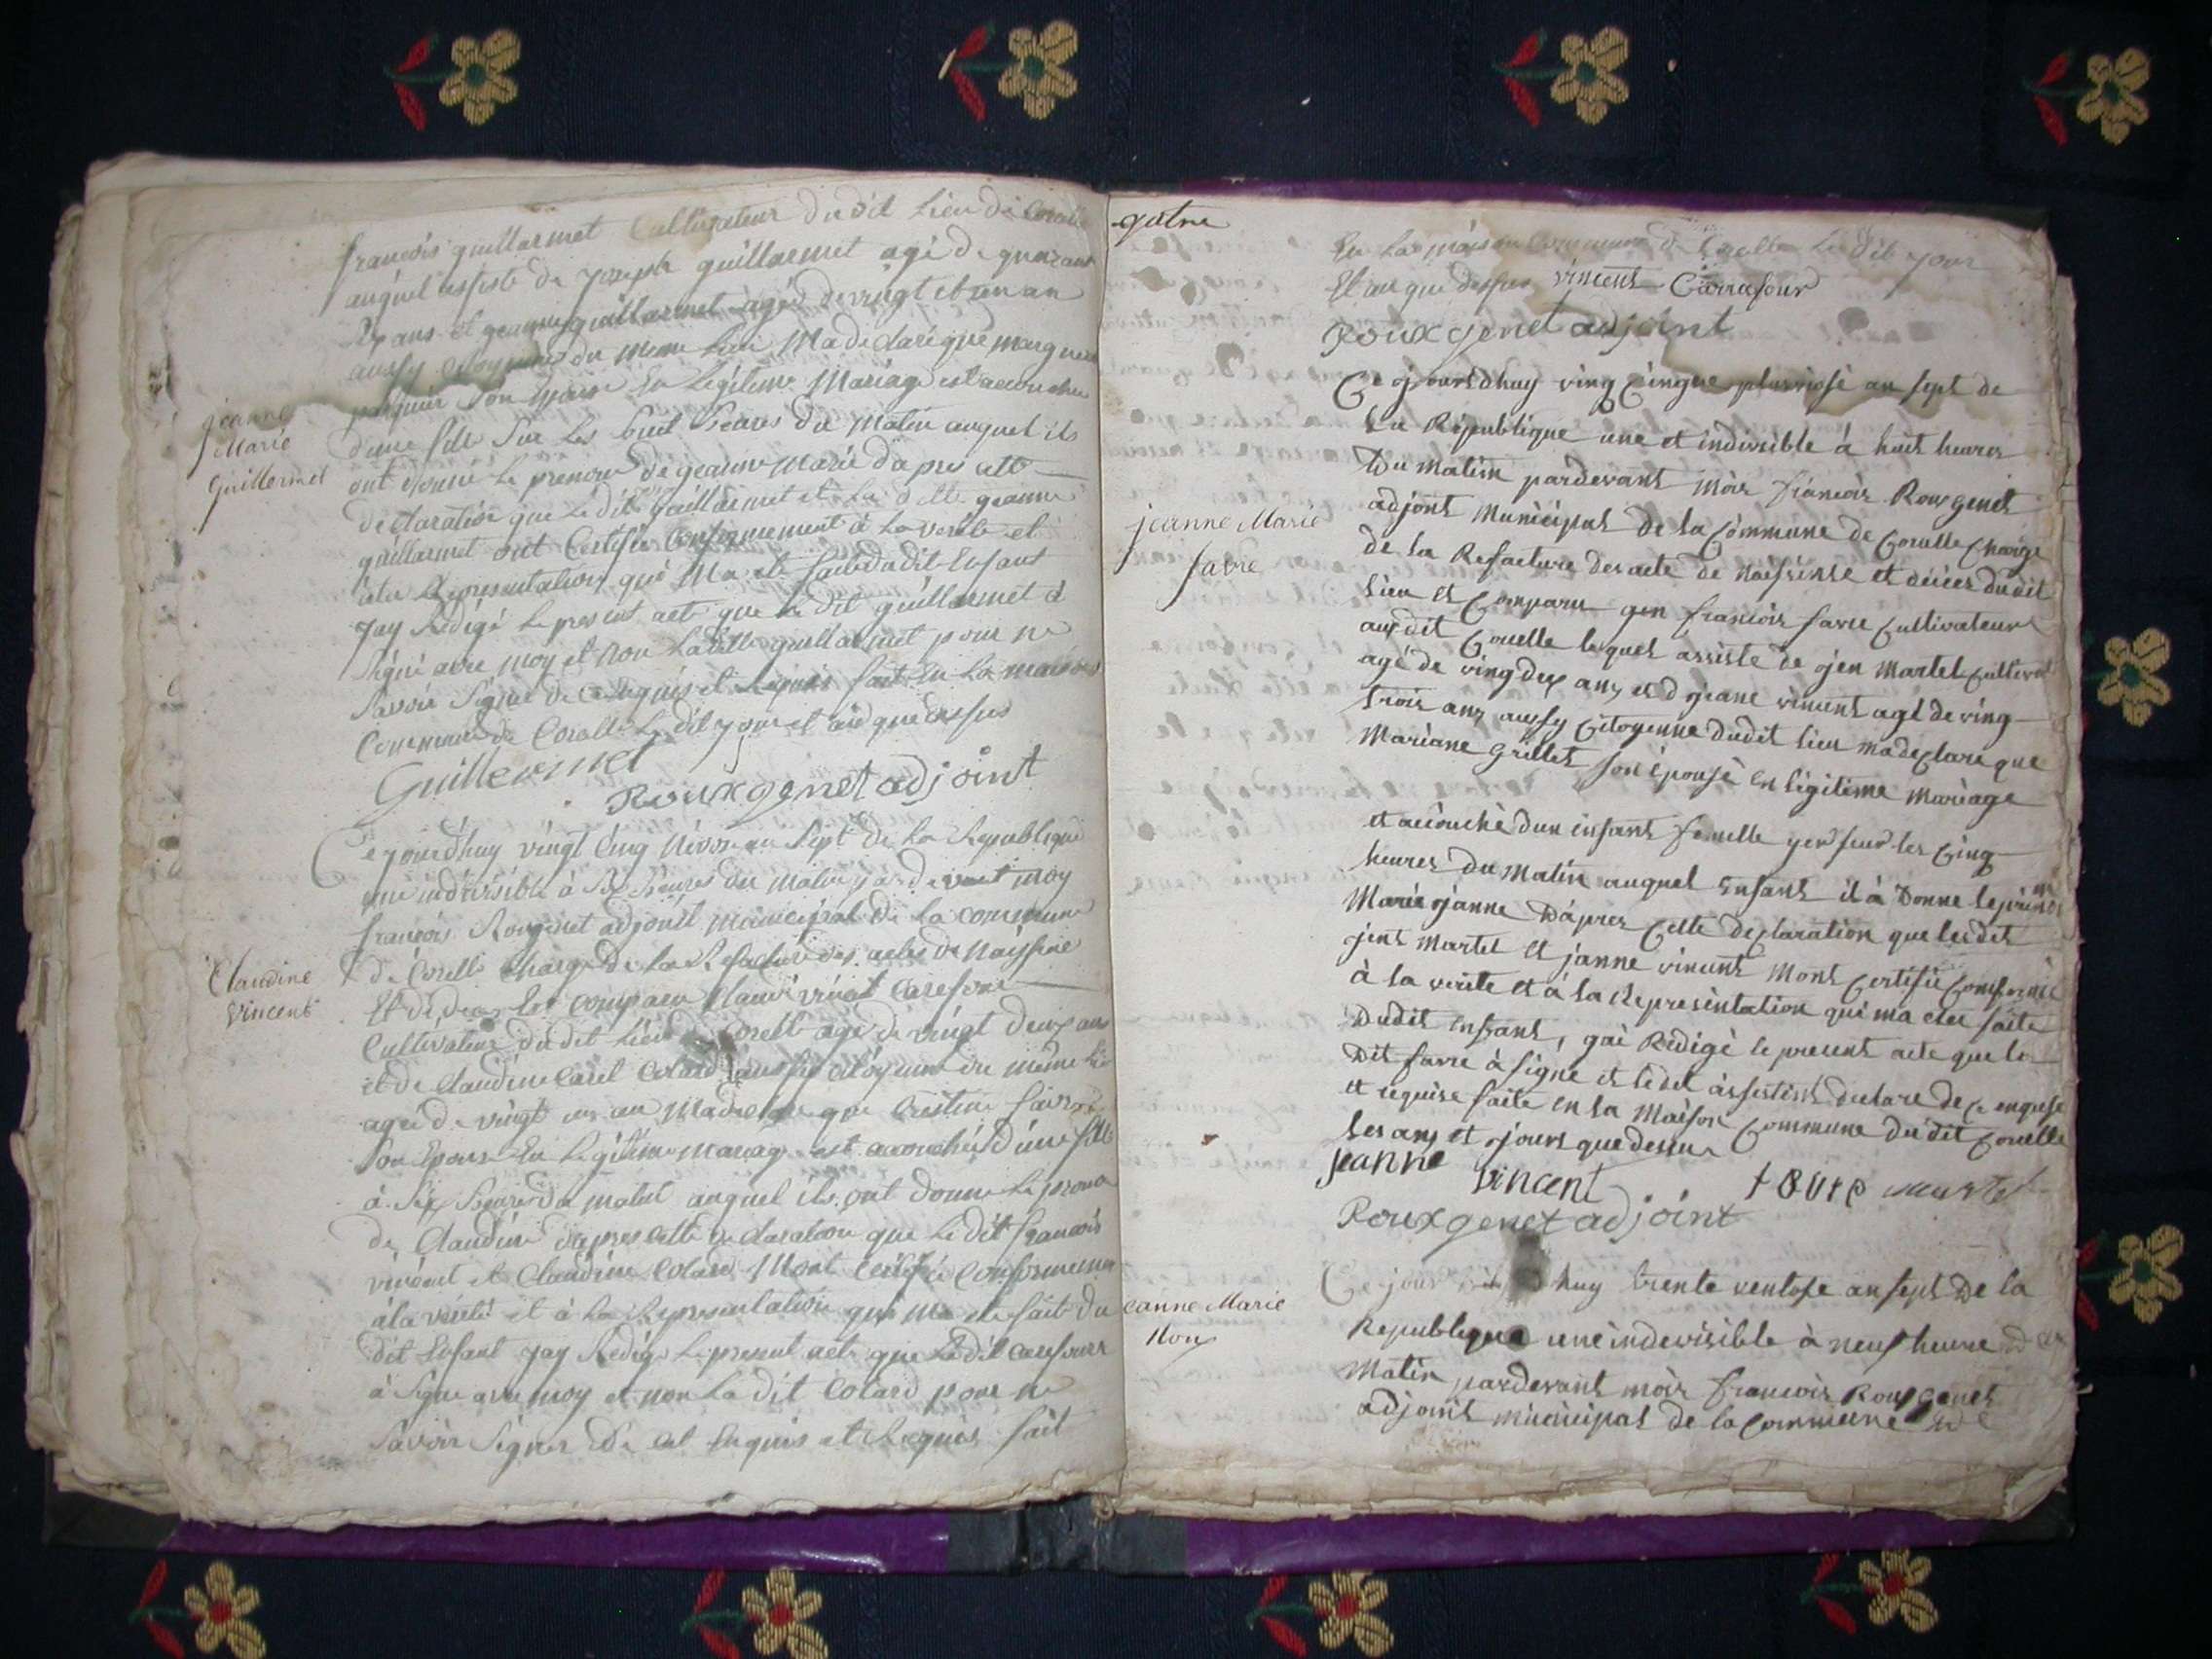 françois guillarmet Cultivateur dudit Lieu de Corelle
auquel assisté de joseph guillarmet agé de quarant
ans et geanne guillarmet agée de vingt et un an
aussy citoyenne du meme Lieu Ma declaré que marguer
son epouse En Légitime Mariage est accouchée
d'une fille Sur Les huit heures du Matin auquel ils
ont donné Le prenom de geanne Marie da pres cette
declaration que Le dit guillarmet et La ditte geanne
guillarmet ont Certifié Conformement à La verité et
à la Representation qui Ma eté faite dudit Enfant
jay Redigé Le present acte que Le dit guillarmet à
Signé avec moy et non Laditte guillarmet pour ne
Savoir Signé de ce Enquis et Requis fait En La maison
Commune de Corelle Le dit jour et an que dessus
Guillermet
Rouxgenet adjoint
jeanne
Marie
Guillermet
Ce jourdhuy vingt Cinq Nivose an Sept de La Republique
une indivisible à Six heures du Matin pardevant moy
françois Rouxgenet adjoint municipal de la commune
de Corelle Chargé de La Refacture des actes de Naissance
Et de deces Est comparu Claude vincent Carefour
Cultivateur dudit Lieu de Corelle agé de vingt deux ans
et de Claudine Carel Colard aussy citoyenne du meme Li
agée de vingt un an Ma declaré que Cristine favre
Son Epouse En Légitime mariage est accouchée d'une fille
à Six heures du matin auquel ils ont donné Le prenom
de Claudine dapres cette declaration que Le dit françois
vincent et Claudine Colard Mont Certifié Conformement
à la verité et à la Representation qui Ma eté fait du
dit Enfant jay Redigé Le present acte que Ledit carefour
à Signé avec moy et non La dit Colard pour ne
Savoir Signer de cel Enquis et Requis fait
Claudine
Vincent
quatre
En La maison Commune de Corelle Le dit jour
Et an que dessus vincent Carrafour
Rouxgenet adjoint
Ce ojourdhuy ving Cinque pluviose an sept de
La Republique une et indivisible à huit heures
Du Matin pardevant Mois francois Rouxgenet
adjont Municipal de la Commune de Corelle Charge
de la Refacture des acte de naissense et deices dudit
Lieu et Comparu gen francois favre Cultivateur
audit Corelle lequel assiste de ojen Martel Cultivat
agé de ving deux ans et d geane vincent agé de ving
trois ans aussy Citoyenne dudit lieu ma declare que
Mariane Grillet son épouse en legitime Mariage
et accouché dun enfant femelle yer sur les Cinq
heures Du Matin auquel enfant il à Donne le prenom
Marie ojanne D'apres Cette Declaration que les dit
jent Martel et janne vincent Mont Certifié Conforme
à la verite et à la Representation qui ma etes faite
Dudit enfant, gai Redigé le present acte que le
Dit favre à signe et le dit assistent declare de ce enquise
et requise faite en la Maison Commune du dit Corelle
les ans et ojours que dessus
jeanne
vincent favre martel
Rouxgenet adjoint
jeanne Marie
favre
Ce jour huy trente ventose an sept De la
Republique une indevisible à neuf heure du
Matin pardevant mois francois Rouxgenet
adjoint municipal de la Commune de
eanne Marie